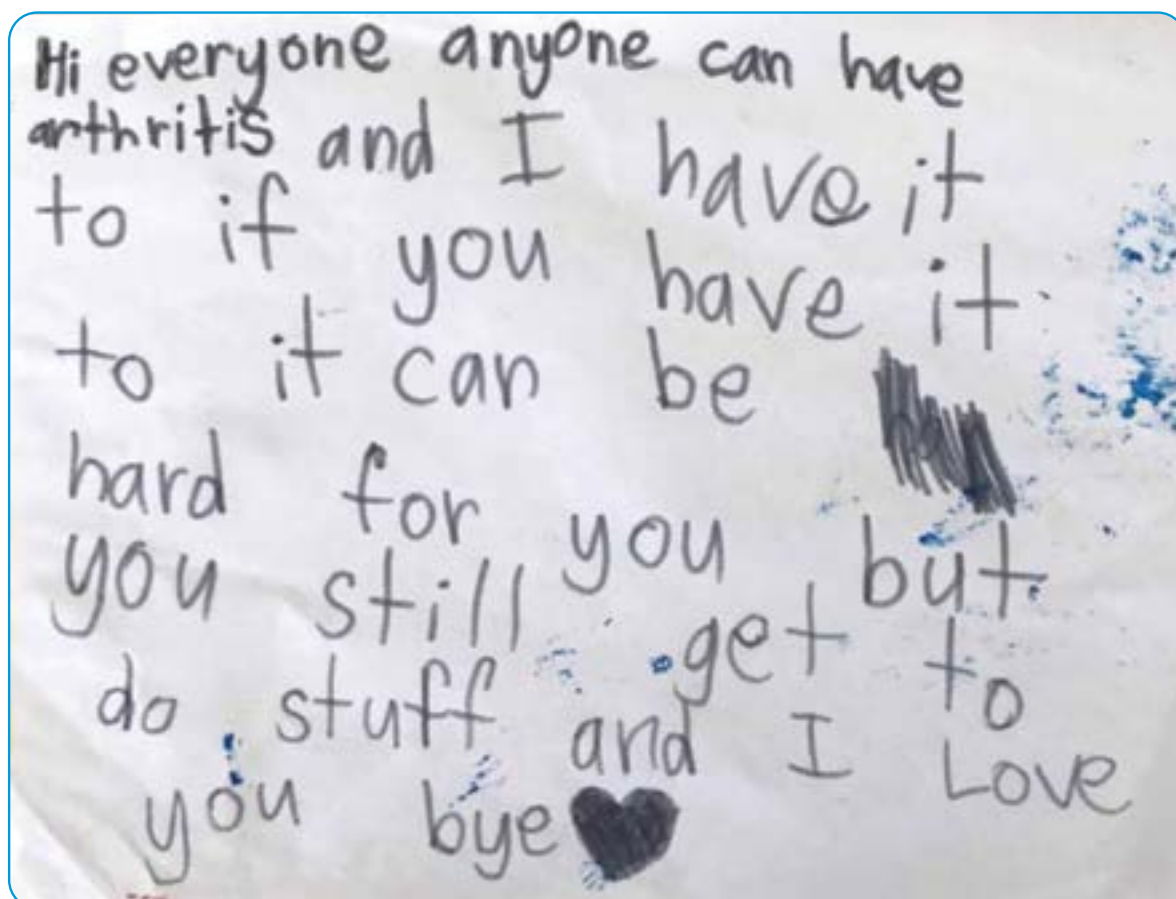 Hi everyone anyone can have
arthritis and I have it
to if you have it
to it can be
hard for you but
you still get to
do stuff and I Love
you bye